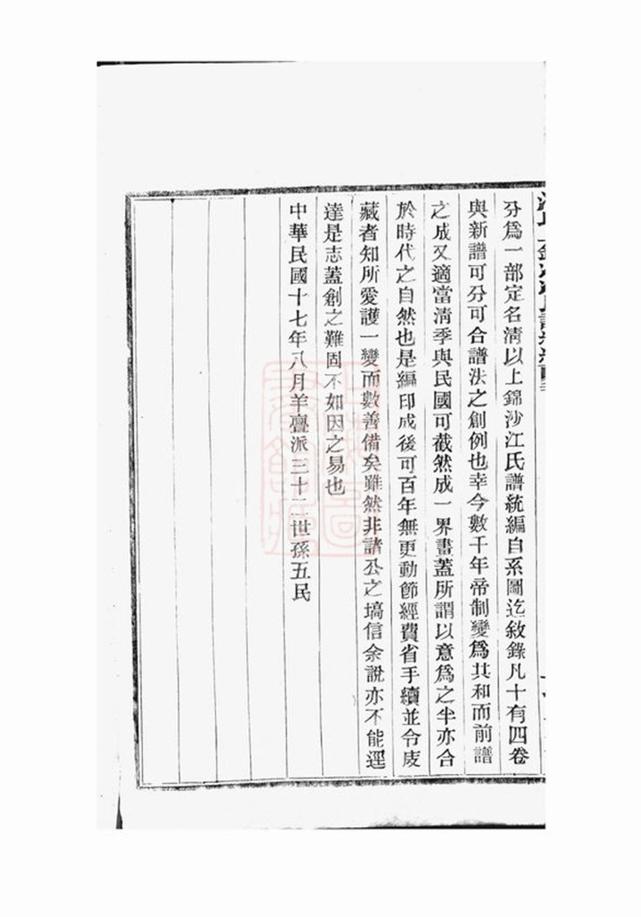 分為一部定名清以上錦沙江氏譜統編自系圖迄敘錄凡十有四卷
與新譜可分可合譜法之創例也幸今數千年帝制變為共和而前譜
之成又適當清季與民國可截然成一界畫蓋所謂以意為之半亦合
於時代之自然也是編印成後可百年無更動節經費省手續並令庋
藏者知所愛護一變而數善備矣雖然非諸公之塙信余說亦不能逕
達是志蓋創之難固不如因之易也
中華民國十七年八月羊疊派三十二世孫五民